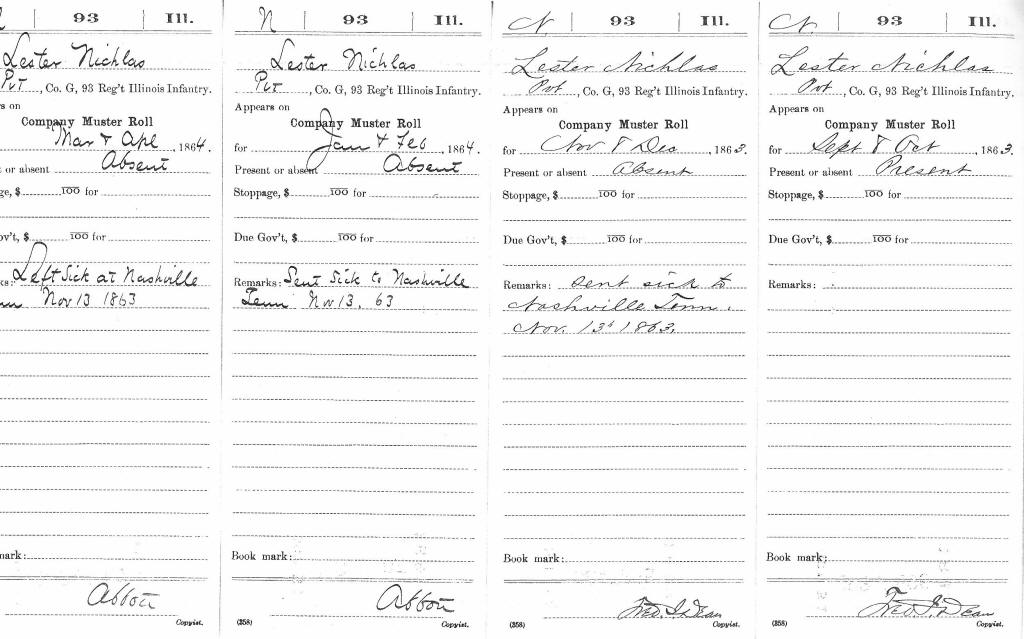 93 | Ill.
Lester Nichlas
Pvt, Co. G, 93 Reg't Illinois Infantry.
s on
Company Muster Roll
Mar & Apl, 1864.
t or absent Absent
ge, $ 100 for
ov't, $ 100 for
s: Left Sick at Nashville
Nov 13 1863
mark:
Abbott
Copyist.
N | 93 | Ill.
Lester Nichlas
Pvt, Co. G, 93 Reg't Illinois Infantry.
Appears on
Company Muster Roll
for Jan & Feb, 1864.
Present or absent Absent
Stoppage, $ 100 for
Due Gov't, $ 100 for
Remarks: Sent Sick to Nashville
Tenn Nov 13. 63
Book mark:
Abbott
(358) Copyist.
N. | 93 | Ill.
Lester Nichlas
Pvt, Co. G, 93 Reg't Illinois Infantry.
Appears on
Company Muster Roll
for Nov & Dec, 1863.
Present or absent Absent
Stoppage, $ 100 for
Due Gov't, $ 100 for
Remarks: sent sick to
Nashville Tenn.
Nov. 13th 1863.
Book mark:
(358) Copyist.
N. | 93 | Ill.
Lester Nichlas
Pvt, Co. G, 93 Reg't Illinois Infantry.
Appears on
Company Muster Roll
for Sept & Oct, 1863.
Present or absent Present
Stoppage, $ 100 for
Due Gov't, $ 100 for
Remarks:
Book mark:
(358) Copyist.